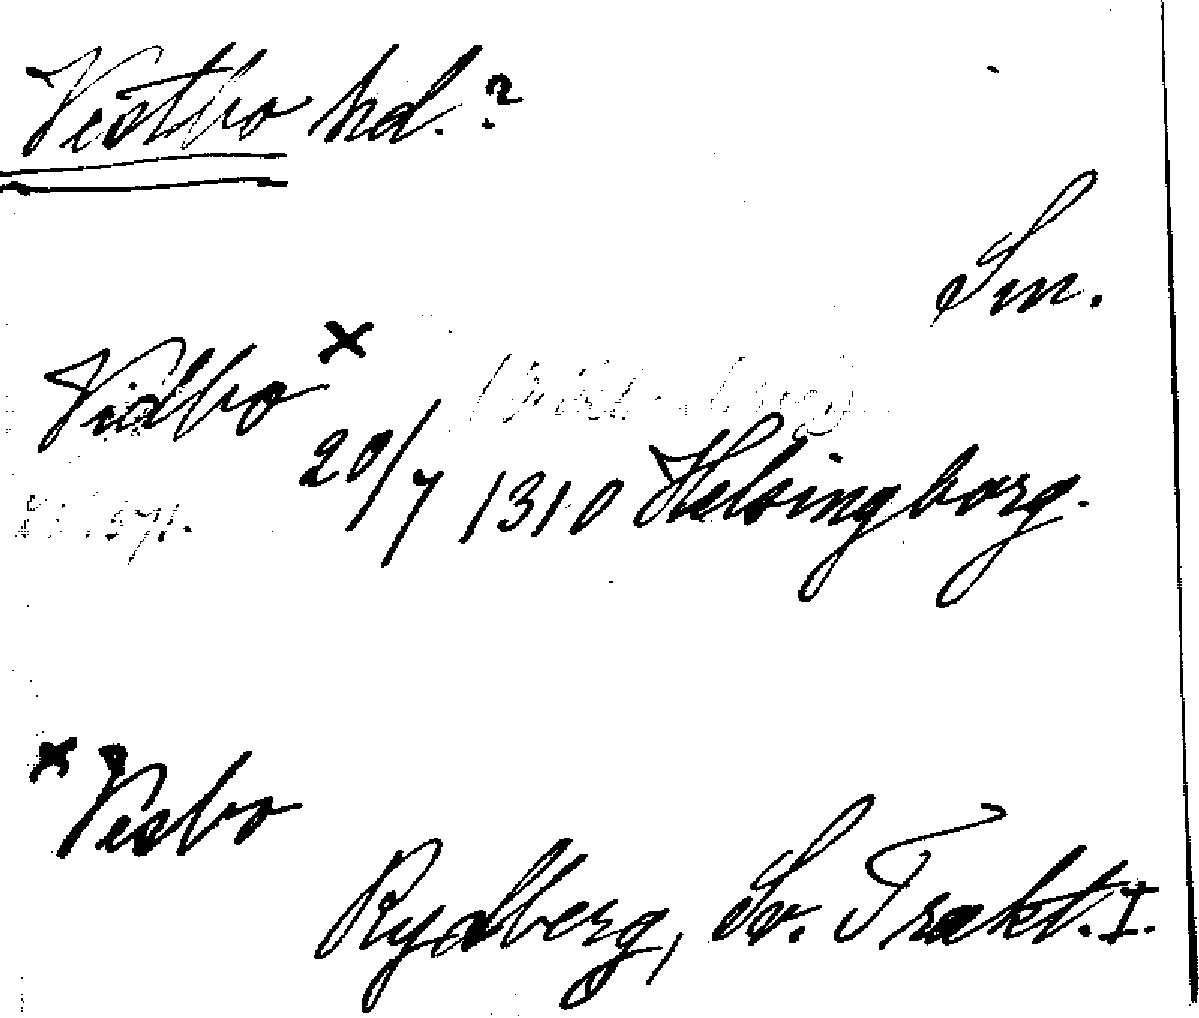 Vestbo hd.?
Sm.
Vidbo x
20/7 1310 Helsingborg.
x Vesbo
Rydberg, Sv. Trakt. I.